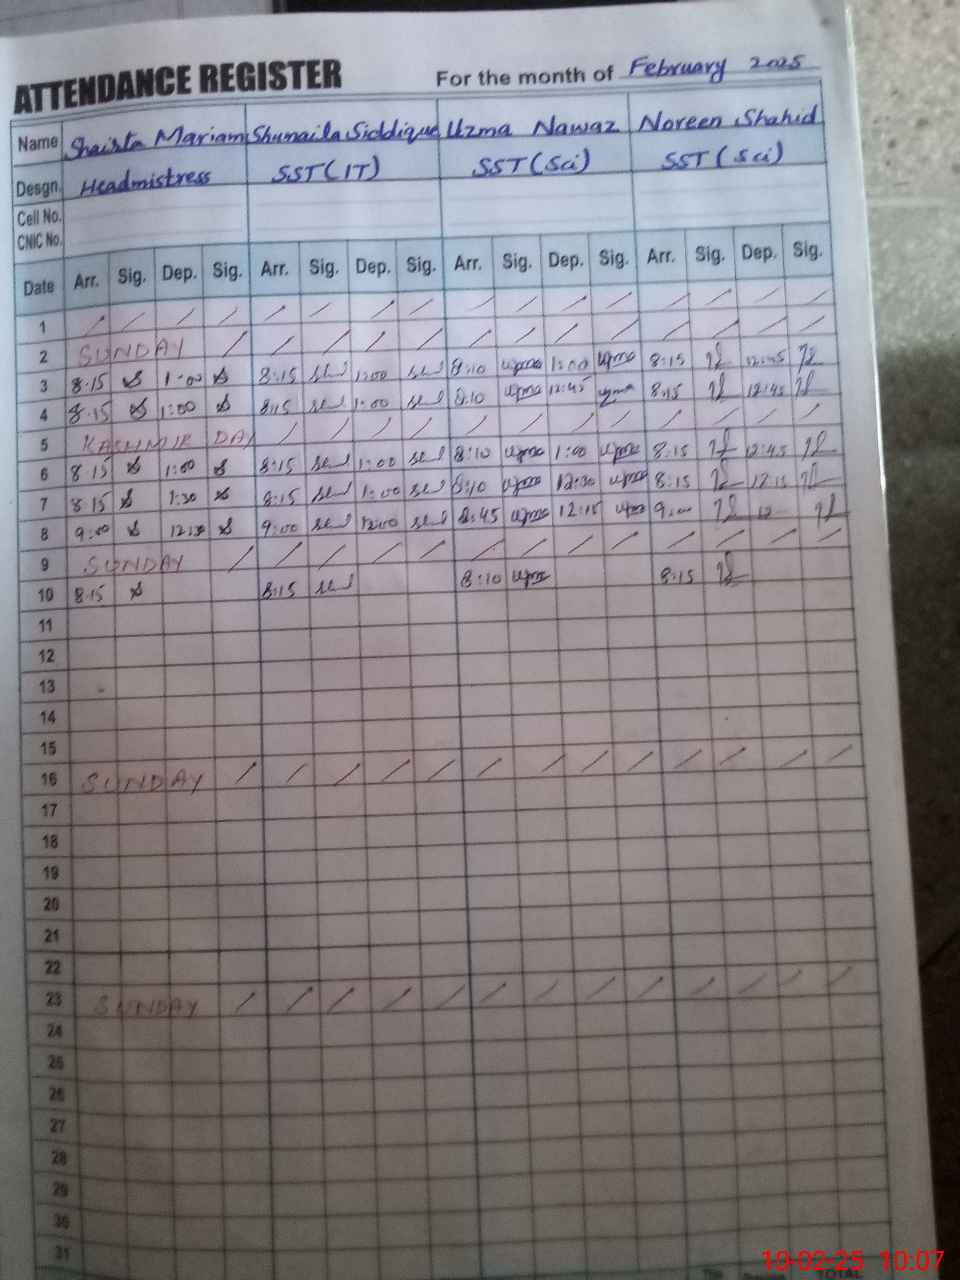 ATTENDANCE REGISTER For the month of February 2025
Name Shaista Mariam Shunaila Siddique Uzma Nawaz Noreen Shahid
Desgn. Headmistress SST (IT) SST (Sci) SST (Sci)
Cell No.
CNIC No.
Date Arr. Sig. Dep. Sig. Arr. Sig. Dep. Sig. Arr. Sig. Dep. Sig. Arr. Sig. Dep. Sig.
1
2 SUNDAY
3 8:15 1:00 8:15 1:00 8:10 1:00 8:15 12:45
4 8:15 1:00 8:15 1:00 8:10 12:45 8:15 12:45
5 KASHMIR DAY
6 8:15 1:00 8:15 1:00 8:10 1:00 8:15 12:45
7 8:15 1:30 8:15 1:00 8:10 12:30 8:15 12:15
8 9:00 12:30 9:00 12:00 8:45 12:15 9:00 12
9 SUNDAY
10 8:15 8:15 8:10 8:15
11
12
13
14
15
16 SUNDAY
17
18
19
20
21
22
23 SUNDAY
24
25
26
27
28
29
30
31
10-02-25 10:07